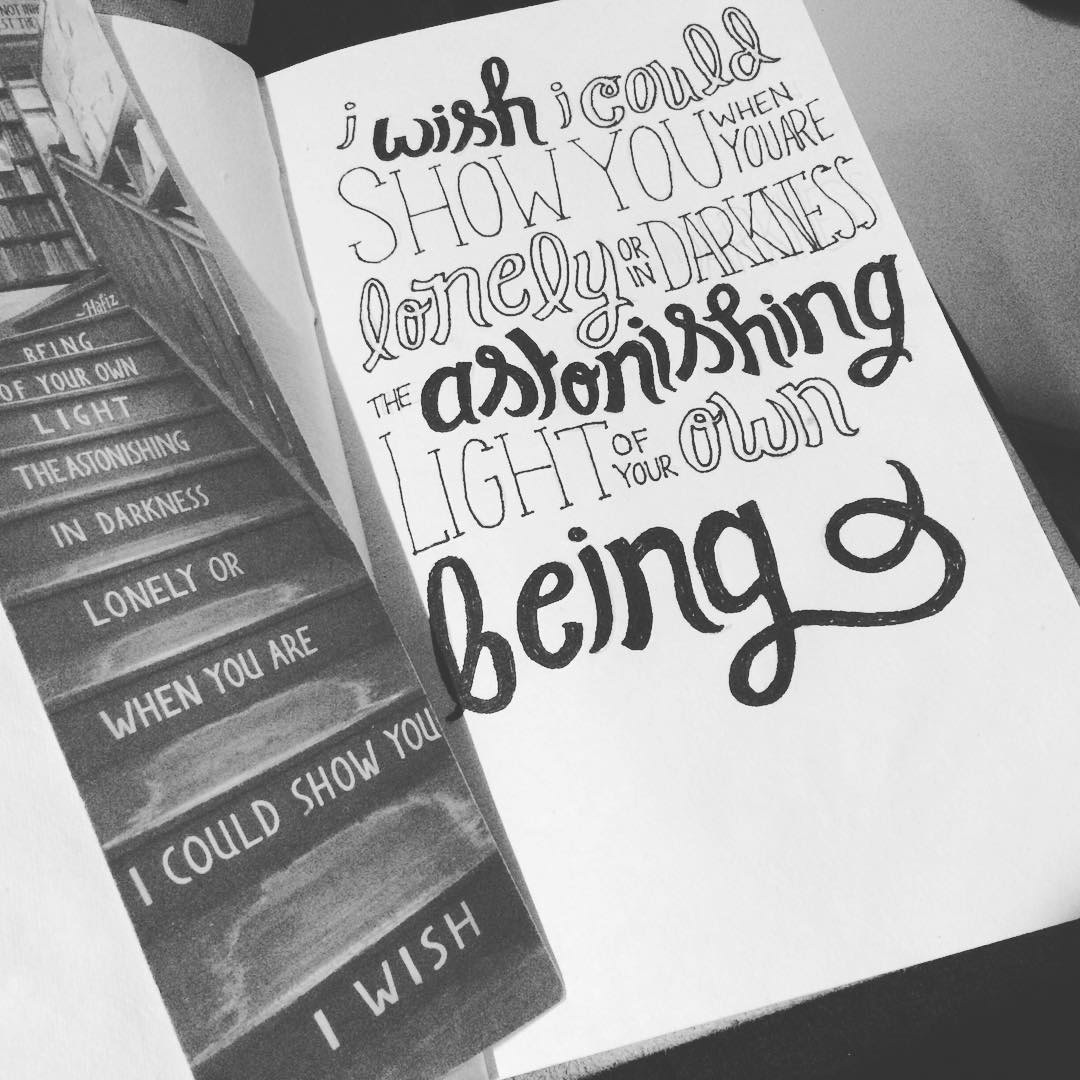 NOT INH
ST THE
~Hafiz
BEING
OF YOUR OWN
LIGHT
THE ASTONISHING
IN DARKNESS
LONELY OR
WHEN YOU ARE
I COULD SHOW YOU
I WISH
i wish i could
SHOW YOU WHEN YOU ARE
lonely OR IN DARKNESS
THE astonishing
LIGHT OF YOUR own
being